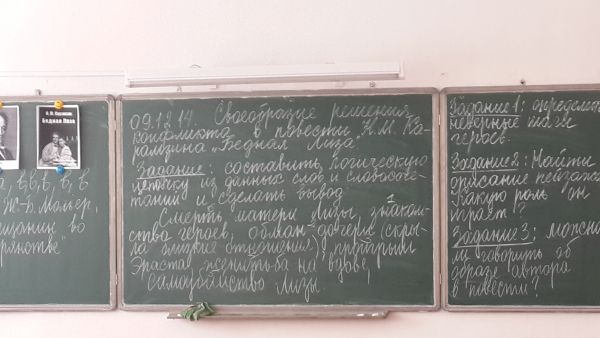 Н. М. Карамзин
Бедная Лиза
а, в, в, в, в, в
Ж-Б. Мольер,
ещанин во
рянстве"
09.12.14. Своеобразие решения
конфликта в повести Н.М. Ка-
рамзина "Бедная Лиза".
Задание: составить логическую
цепочку из данных слов и словосоче-
таний и сделать вывод
Смерть матери Лизы, знаком-
ство героев, обман дочери (скры-
ла близкие отношения), проигрыш
Эраста, женитьба на вдове,
самоубийство Лизы.
Задание 1: определить
неверные шаги
героев.
Задание 2: Найти
описание пейзажа
Какую роль он
играет?
Задание 3: можно
ли говорить об
образе автора
в повести?